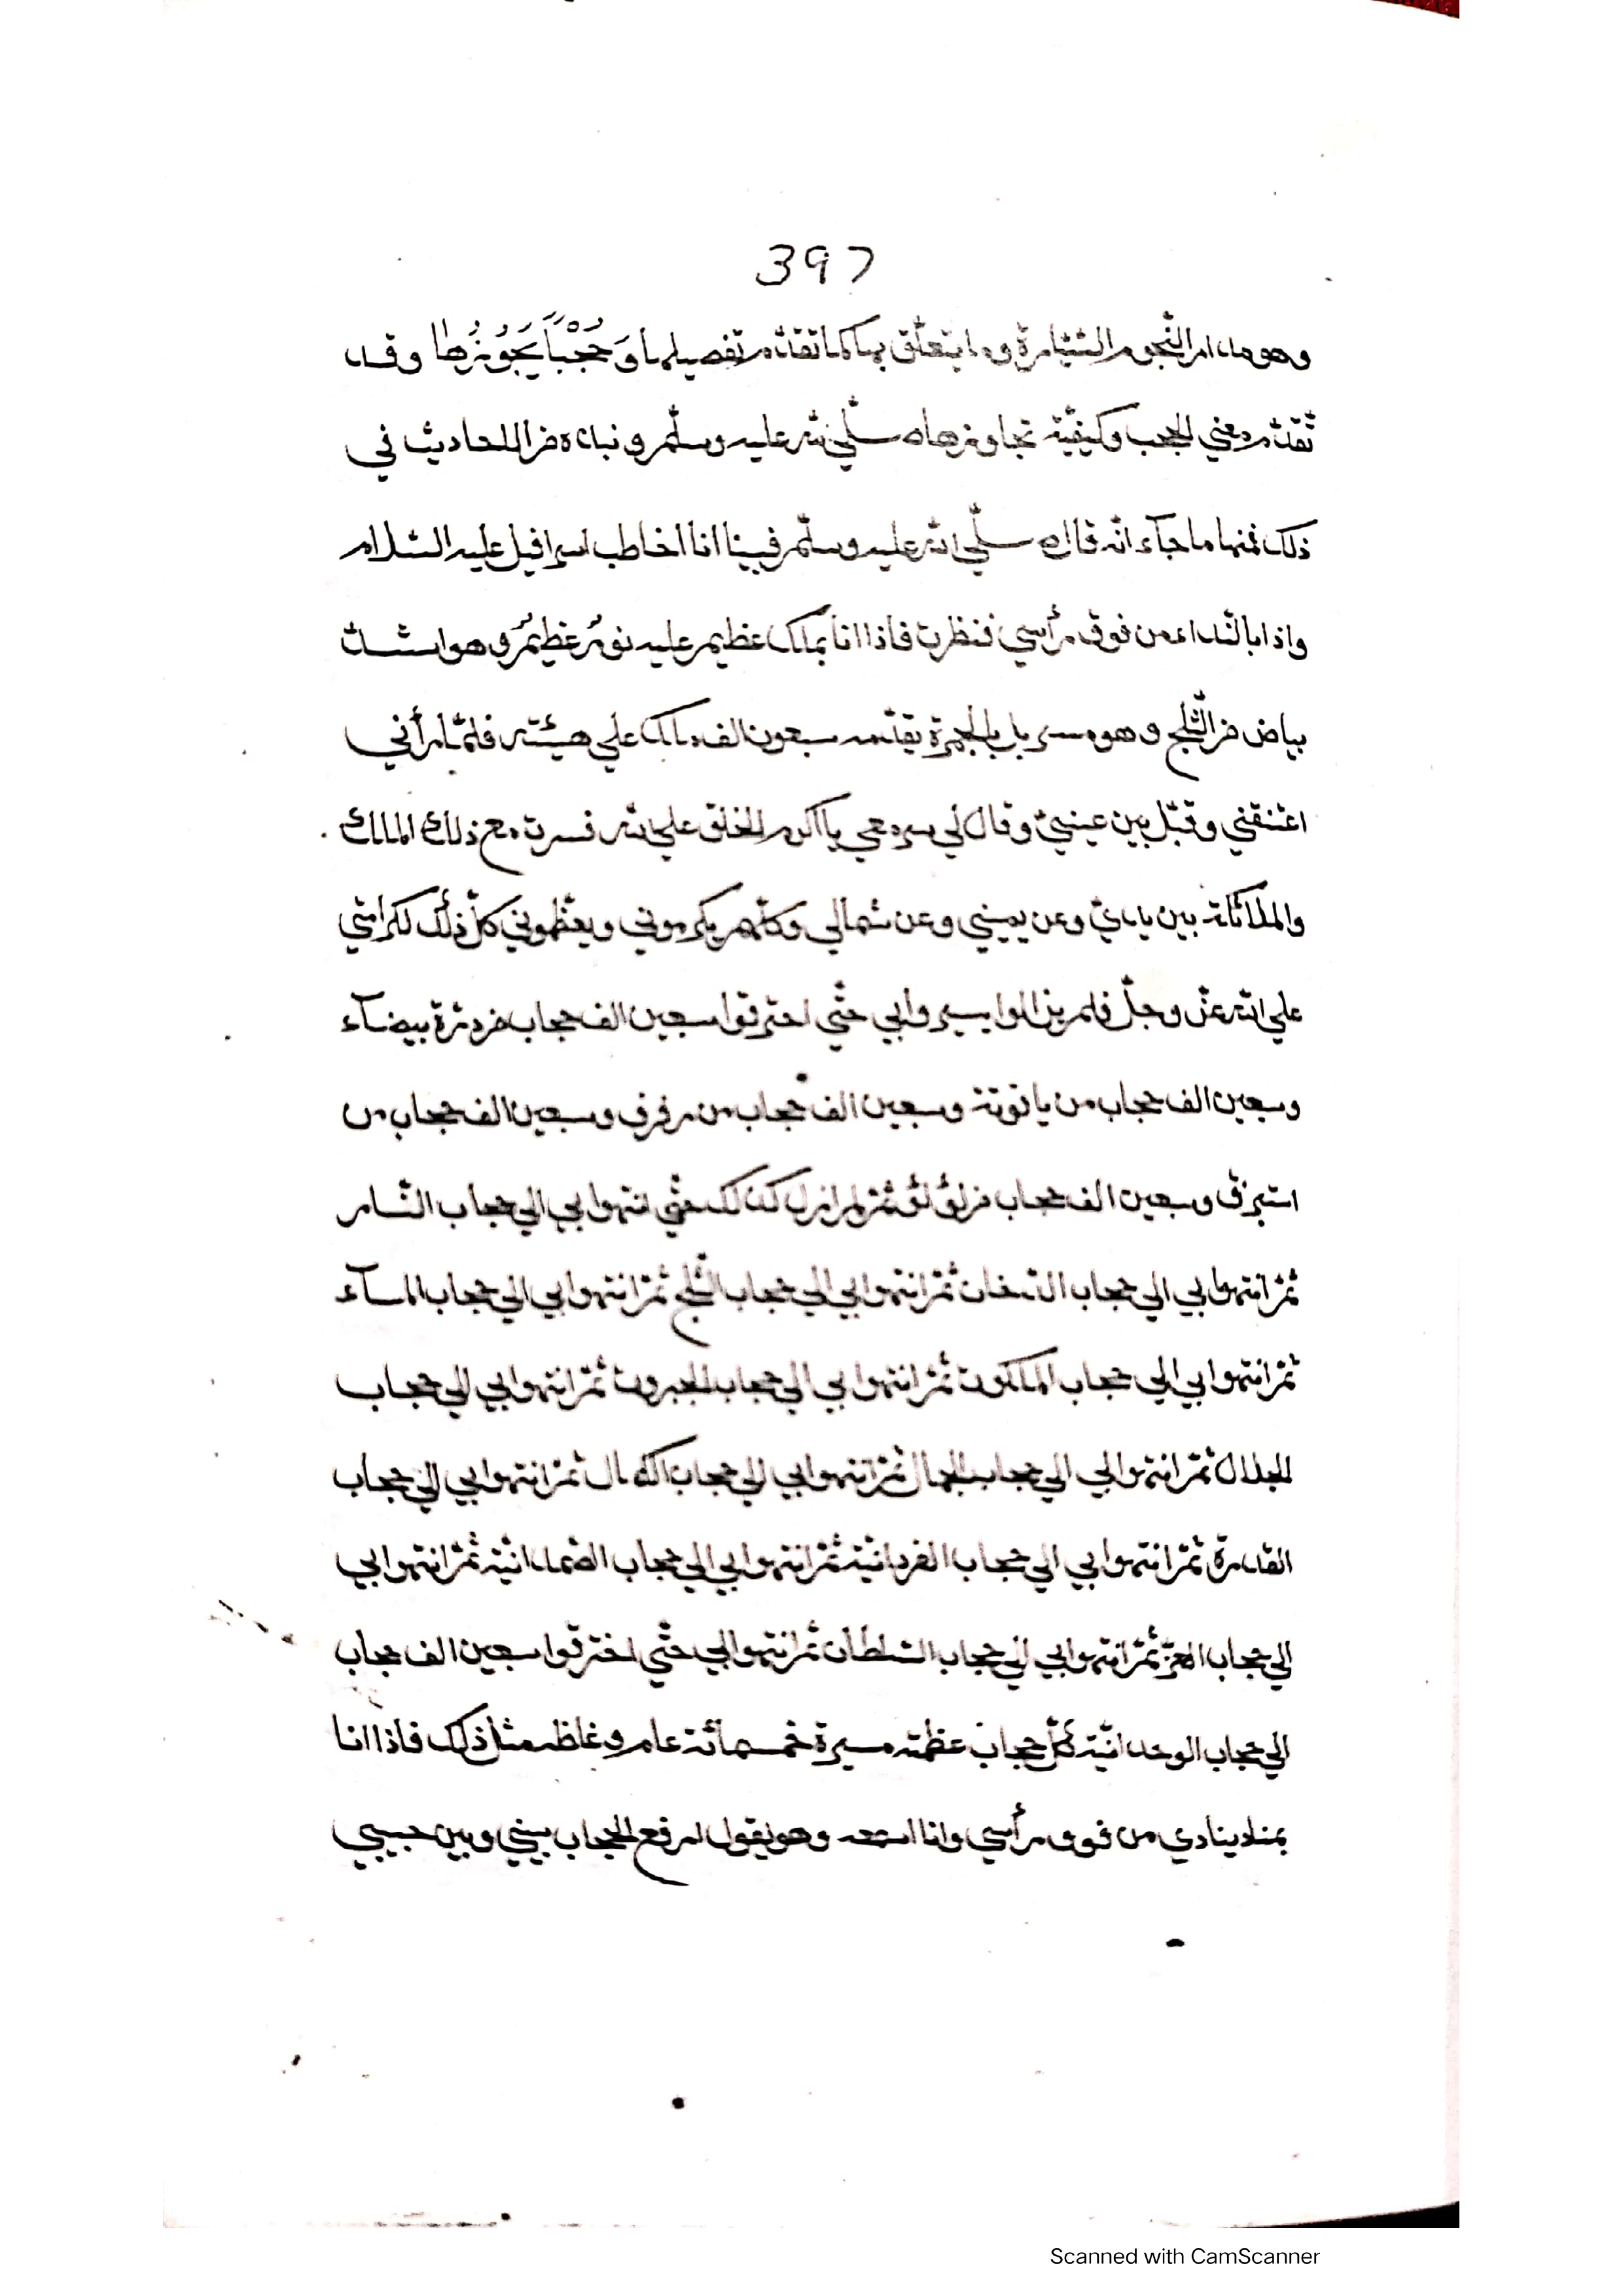 397
وهو مدار النّجوم السّيّارة وما يتعلّق بها كما تقدّم تفصيلها وَحُجُبْاً يَجُوُزُها وقد
تقدّم معني الحجب وكيفيّة تجاوزها صلّي الله عليه وسلّم ونبذة من الاحاديث في
ذلك فمنها ما جآء انّه قال صلّي الله عليه وسلّم فبينا انا اخاطب اسرافيل عليه السّلام
واذا بالنّداء من فوق رأسي فنظرت فاذا انا بملك عظيم عليه نورٌ عظيمٌ وهو اشدّ
بياض من الثّلج وهو مسربل بالحمرة يقدّمه سبعون الف ملك علي هيئته فلمّا رأني
اعتنقني وقبّل بين عينيّ وقال لي سر معي يا اكرم الخلق علي الله فسرت مع ذلك الملك
والملائكة بين يديّ وعن يميني وعن شمالي وكلّهم يكرموني ويعظّموني كلّ ذلك لكرامتي
علي الله عزّ وجلّ فلم يزالوا يسيروا بي حتّي اخترقوا سبعين الف حجاب من درّة بيضآء
وسبعين الف حجاب من ياقوتة وسبعين الف حجاب من رفرف وسبعين الف حجاب من
استبرق وسبعين الف حجاب من لؤلؤ ثمّ لم ازل كذلك حتّي انتهوا بي الي حجاب النّار
ثمّ انتهوا بي الي حجاب الدّخان ثمّ انتهوا بي الي حجاب الثّلج ثمّ انتهوا بي الي حجاب المآء
ثمّ انتهوا بي الي حجاب الملكوت ثمّ انتهوا بي الي حجاب الجبروت ثمّ انتهوا بي الي حجاب
الجلال ثمّ انتهوا بي الي حجاب الجمال ثمّ انتهوا بي الي حجاب الكمال ثمّ انتهوا بي الي حجاب
القدرة ثمّ انتهوا بي الي حجاب الفردانيّة ثمّ انتهوا بي الي حجاب الصّمدانيّة ثمّ انتهوا بي
الي حجاب العزّ ثمّ انتهوا بي الي حجاب السّلطان ثمّ انتهوا بي حتّي اخترقوا سبعين الف حجاب
الي حجاب الوحدانيّة كلّ حجاب عظمته مسيرة خمسمائة عام وغلظه مثل ذلك فاذا انا
بمناد ينادي من فوق رأسي وانا اسمعه وهو يقول ارفع الحجاب بيني وبين حبيبي
Scanned with CamScanner